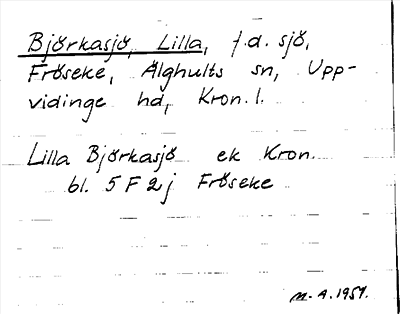 Björkasjö, Lilla, f.d. sjö,
Fröseke, Älghults sn, Upp-
vidinge hd, Kron. l.
Lilla Björkasjö ek Kron.
bl. 5 F 2 j Fröseke
M. A. 1959.